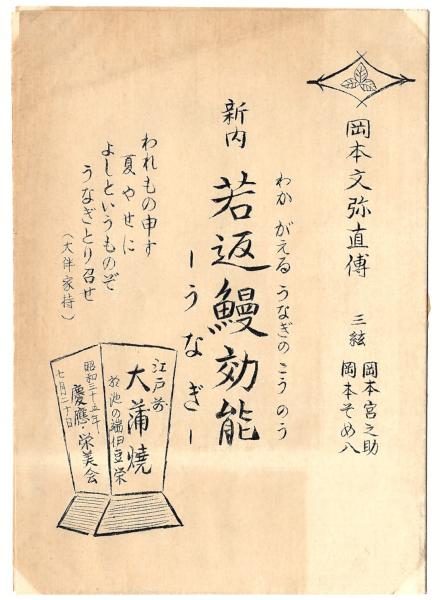 岡本文弥直傳
三絃
岡本宮之助
岡本そめ八
わか がえる うなぎの こう のう
新内
若返鰻効能
ーうなぎー
われもの申す
夏やせに
よしというものぞ
うなぎとり召せ
(大伴家持)
江戸前
大蒲燒
於池の端伊豆栄
昭和三十五年
七月二十日
慶應・栄美会